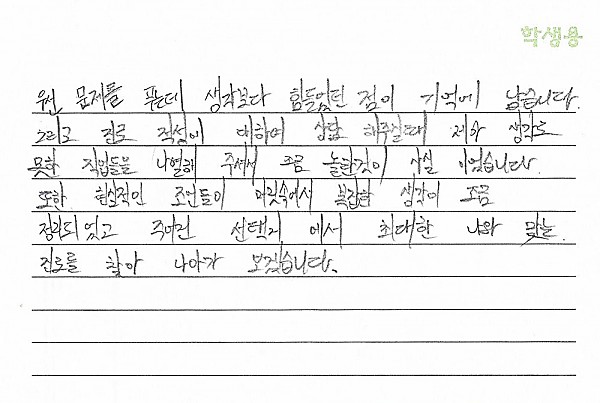 학생용
우선 문제를 푸는데 생각보다 힘들었던 점이 기억에 남습니다.
그리고 진로 적성에 대하여 상담 해주실때 제가 생각도
못한 직업들을 나열해 주셔서 조금 놀란것이 사실 이었습니다.
또한 현실적인 조언들이 머릿속에서 복잡한 생각이 조금
정리되었고 주어진 선택지 에서 최대한 나와 맞는
진로를 찾아 나아가 보겠습니다.